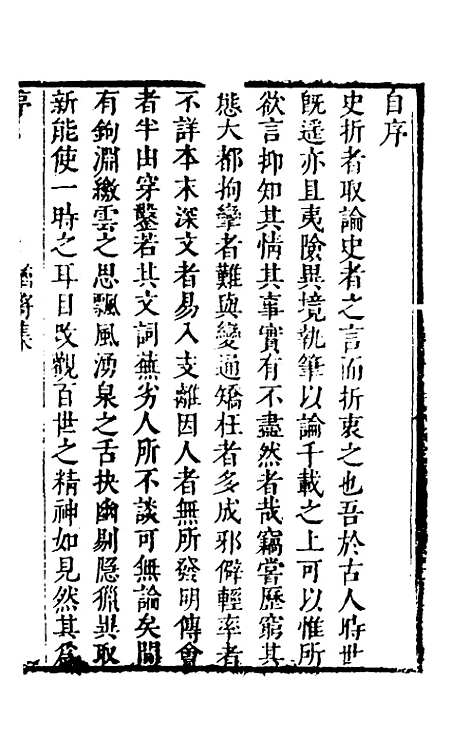 自序
史折者取論史者之言而折衷之也吾於古人時世
既遥亦且夷險異境執筆以論千載之上可以惟所
欲言抑知其情其事實有不盡然者哉竊嘗歷窮其
態大都拘攣者難與變通矯枉者多成邪僻輕率者
不詳本末深文者易入支離因人者無所發明傳會
者半由穿鑿若其文詞蕪劣人所不談可無論矣間
有鉤淵繳雲之思飄風湧泉之舌抉幽剔隱獵異取
新能使一時之耳目改觀百世之精神如見然其爲
序